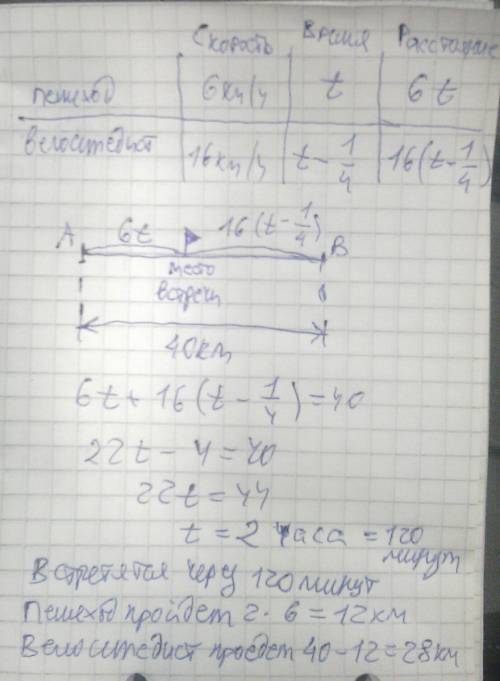 Скорость Время Расстояние
пешеход 6км/ч t 6t
велосипедист 16км/ч t - 1/4 16(t - 1/4)
A 6t 16(t - 1/4) B
место
встречи
40км
6t + 16(t - 1/4) = 40
22t - 4 = 40
22t = 44
t = 2 часа = 120
минут
Встретятся через 120 минут
Пешеход пройдет 2 · 6 = 12 км
Велосипедист проедет 40 - 12 = 28 км